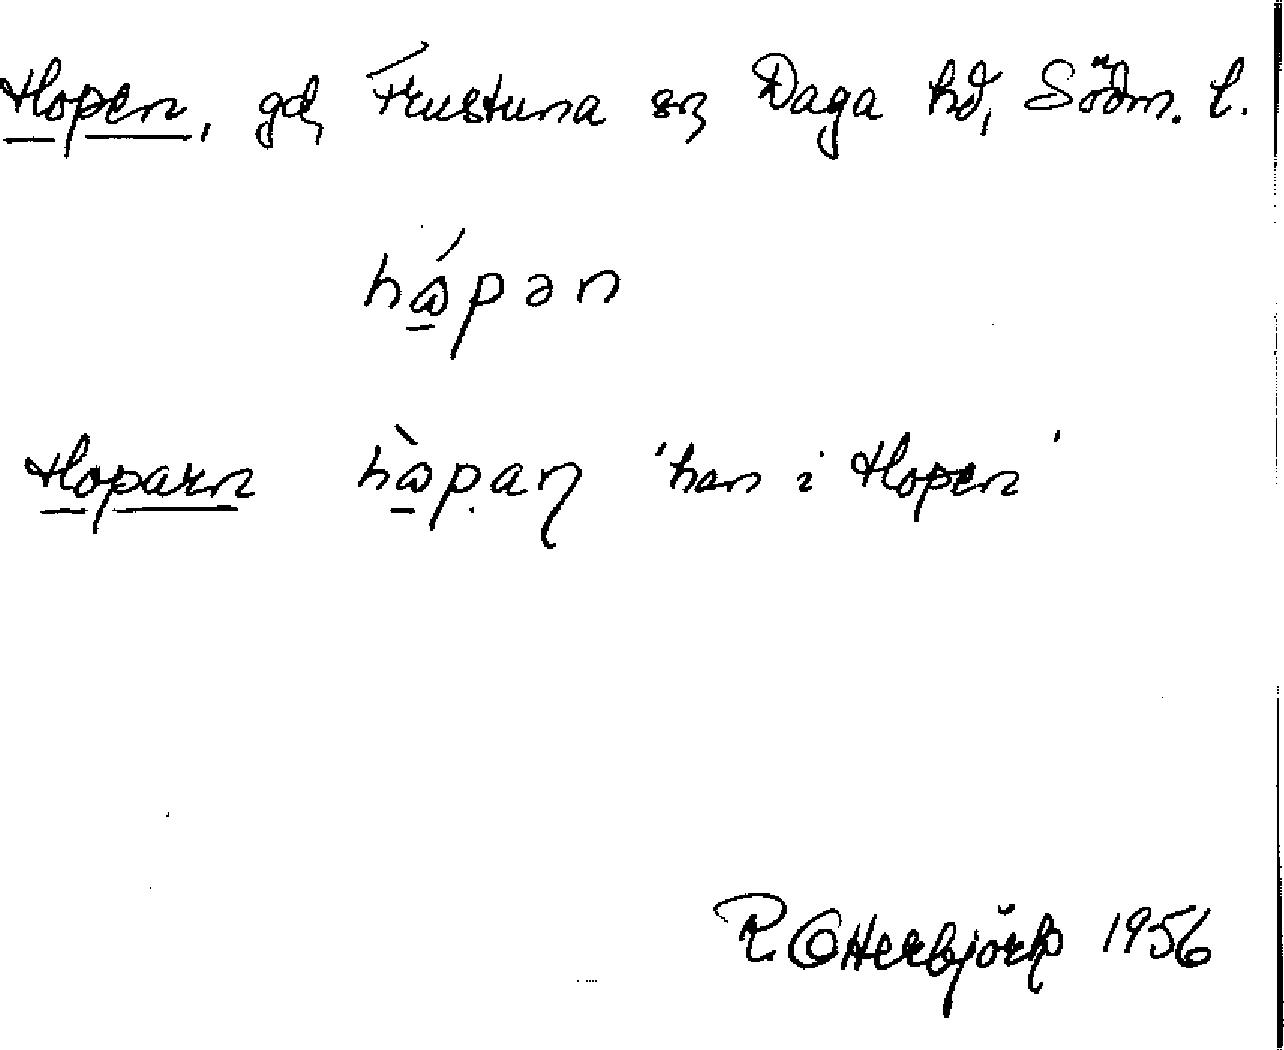 Hopen, gd, Frustuna sn, Daga hd, Södm. l.
hώ̲pən
Hoparn hὼ̲p.aɳ 'han i Hopen'
R Otterbjörk 1956